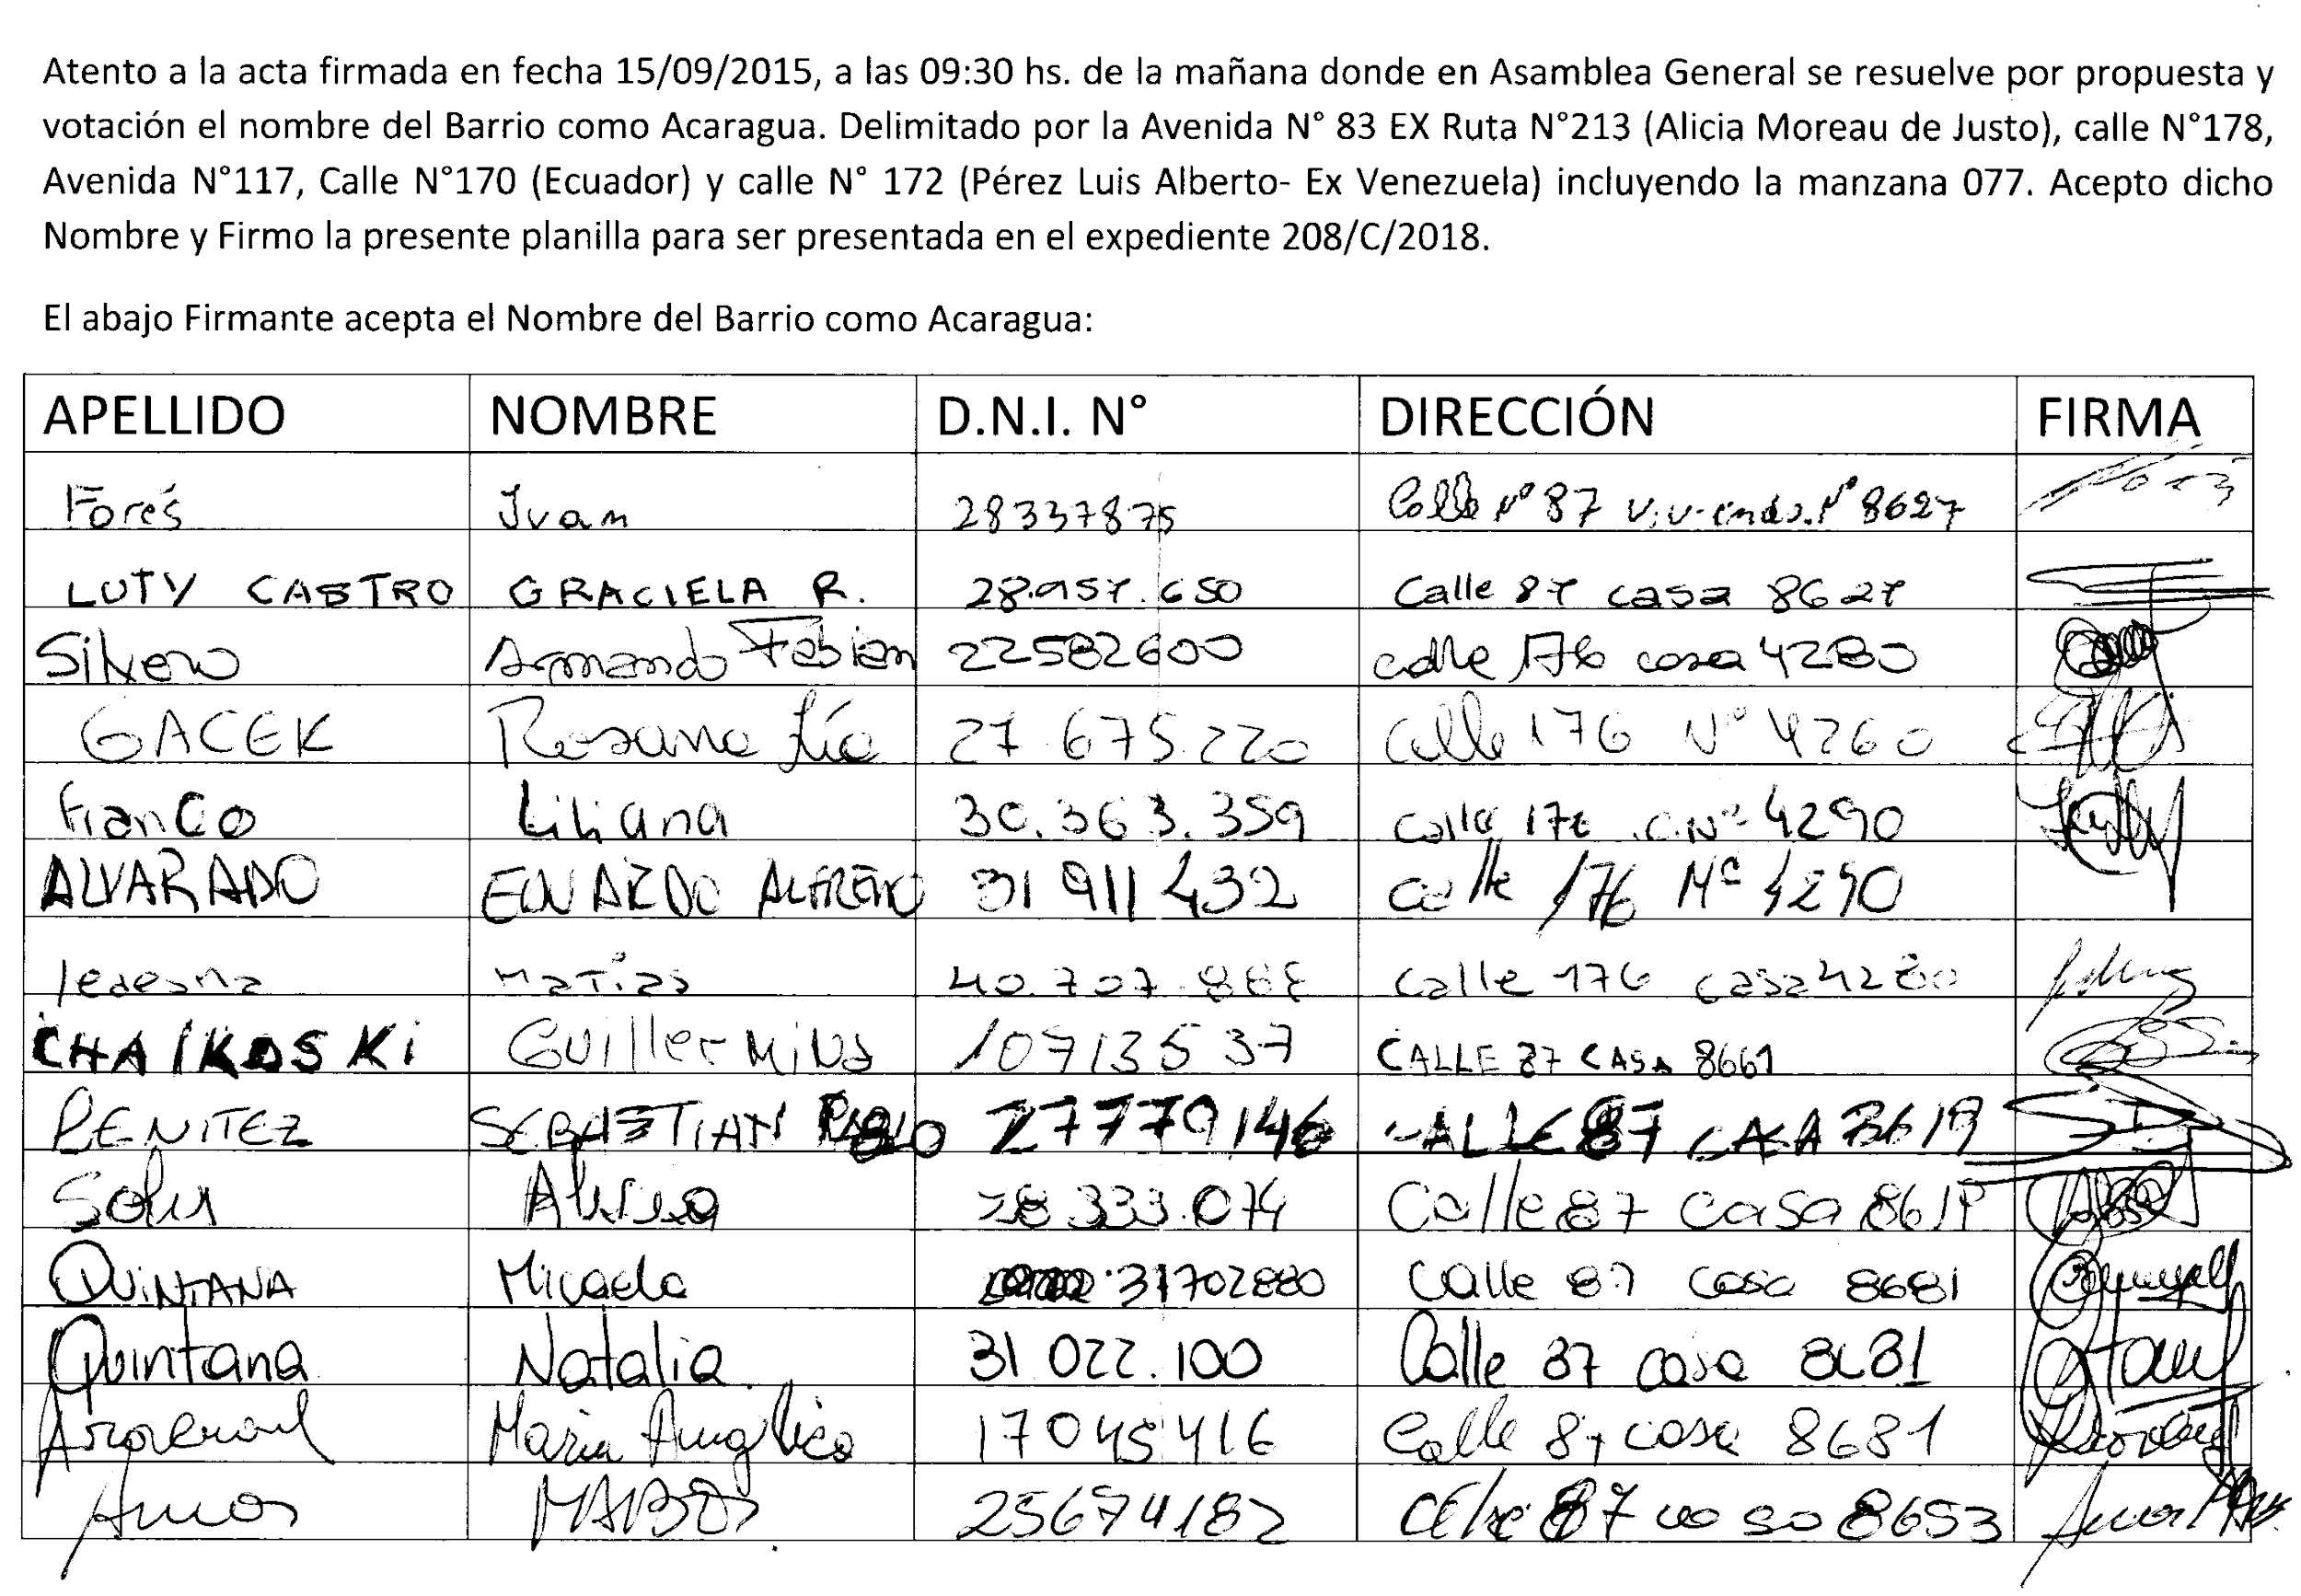 Atento a la acta firmada en fecha 15/09/2015, a las 09:30 hs. de la mañana donde en Asamblea General se resuelve por propuesta y
votación el nombre del Barrio como Acaragua. Delimitado por la Avenida N° 83 EX Ruta N°213 (Alicia Moreau de Justo), calle N°178,
Avenida N°117, Calle N°170 (Ecuador) y calle N° 172 (Pérez Luis Alberto- Ex Venezuela) incluyendo la manzana 077. Acepto dicho
Nombre y Firmo la presente planilla para ser presentada en el expediente 208/C/2018.
El abajo Firmante acepta el Nombre del Barrio como Acaragua:
APELLIDO NOMBRE D.N.I. N° DIRECCIÓN FIRMA
Forés Ivan 28337875 Calle N° 87 Vivienda N° 8627
LUTY CASTRO GRACIELA R. 28.957.650 Calle 87 casa 8627
Silvero Armando Fabian 22582600 calle 176 casa 4280
GACEK Rosana 27.675.220 Calle 176 N° 4260
Franco Liliana 30.363.359 Calle 176 C.N° 4290
ALVARADO EDUARDO ALFREDO 31 911 432 calle 176 N° 4290
ledesma matias 40.707.888 calle 176 casa 4280
CHAIKOSKi Guillermina CALLE 87 CASA 8661
BENITEZ SEBASTIAN PABLO 27779146 CALLE 87 CASA 8619
28.333.074 Calle 87 casa 8619
QUINTANA Micaela 31702880 Calle 87 casa 8681
Quintana Natalia 31 022.100 Calle 87 casa 8681
Maria Angelica 17045416 Calle 87 casa 8681
25674182 87 8653